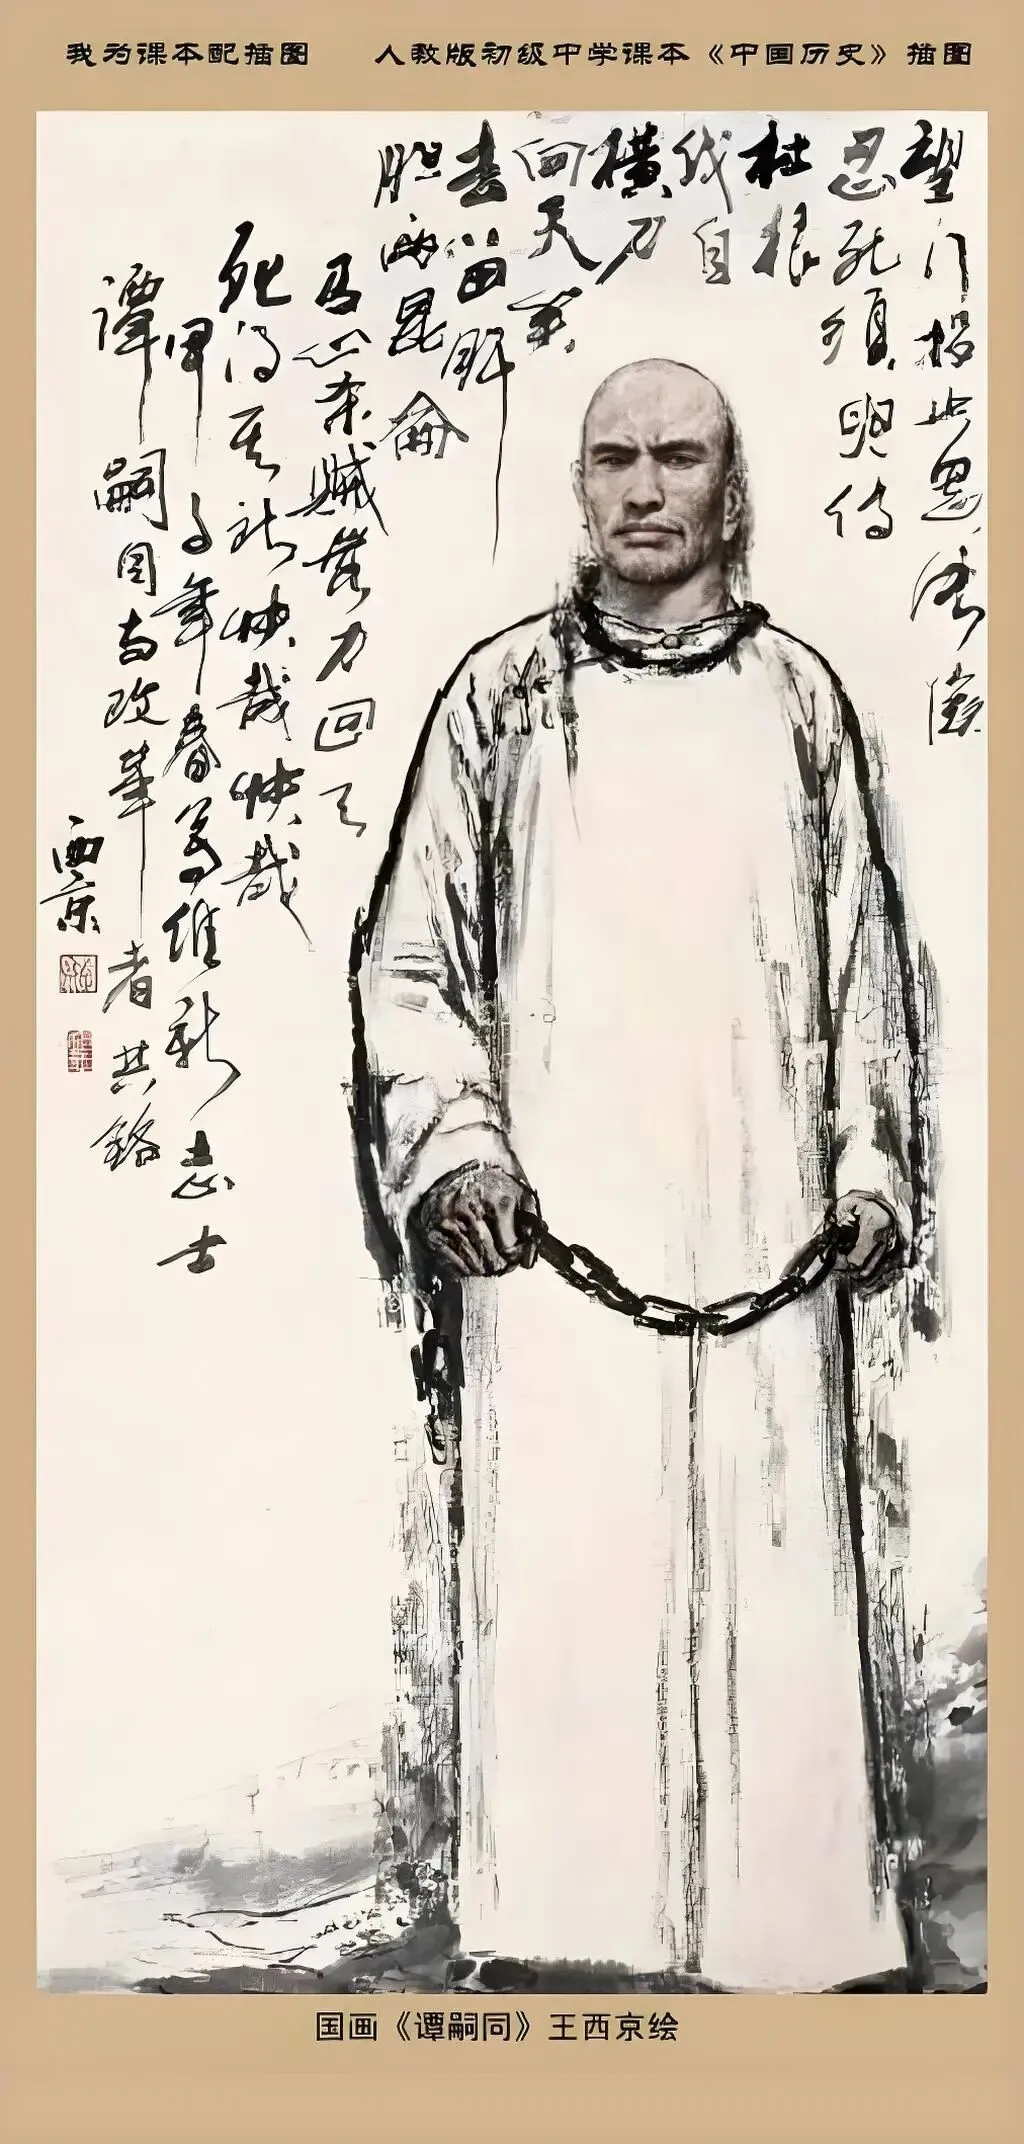 我为课本配插图 人教版初级中学课本《中国历史》插图
望门投止思張儉
忍死須臾待
杜根
我自
横刀
向天笑
去留肝
胆两昆侖
有心杀贼無力回天
死得其所快哉快哉
甲子年春写维新志士
谭嗣同与改革者共铭
西京
国画《谭嗣同》王西京绘